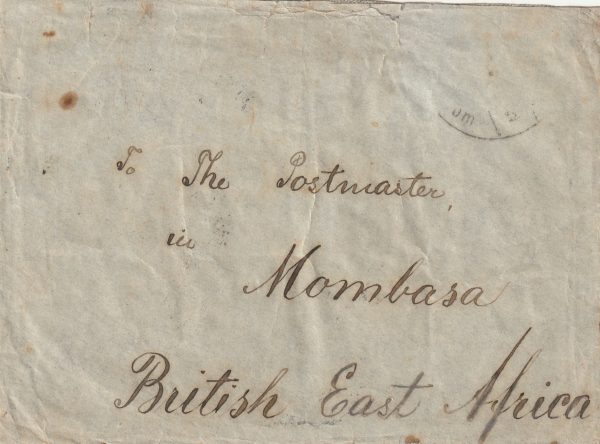 To The Postmaster,
in
Mombasa
British East Africa